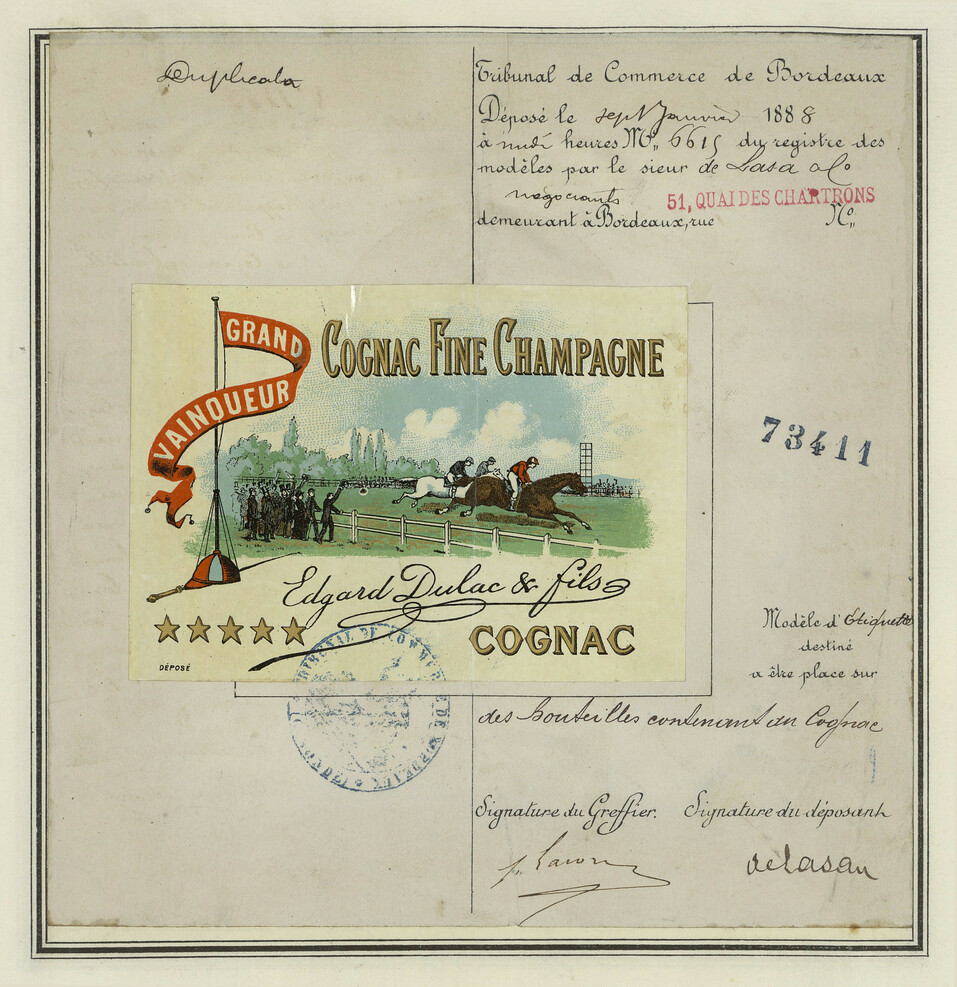 Duplicata
Tribunal de Commerce de Bordeaux
Déposé le sept Janvier 1888
à midi heures Nº 6615 du registre des
modèles par le sieur de Lasa & Cº
négociants 51, QUAI DES CHARTRONS
demeurant à Bordeaux, rue Nº
GRAND
VAINQUEUR
COGNAC FINE CHAMPAGNE
73411
Edgard Dulac & fils
COGNAC
DÉPOSÉ
TRIBUNAL DE COMMERCE DE BORDEAUX
Modèle d'Etiquette
destiné
a être place sur
des bouteilles contenant du Cognac
Signature du Greffier. Signature du déposant